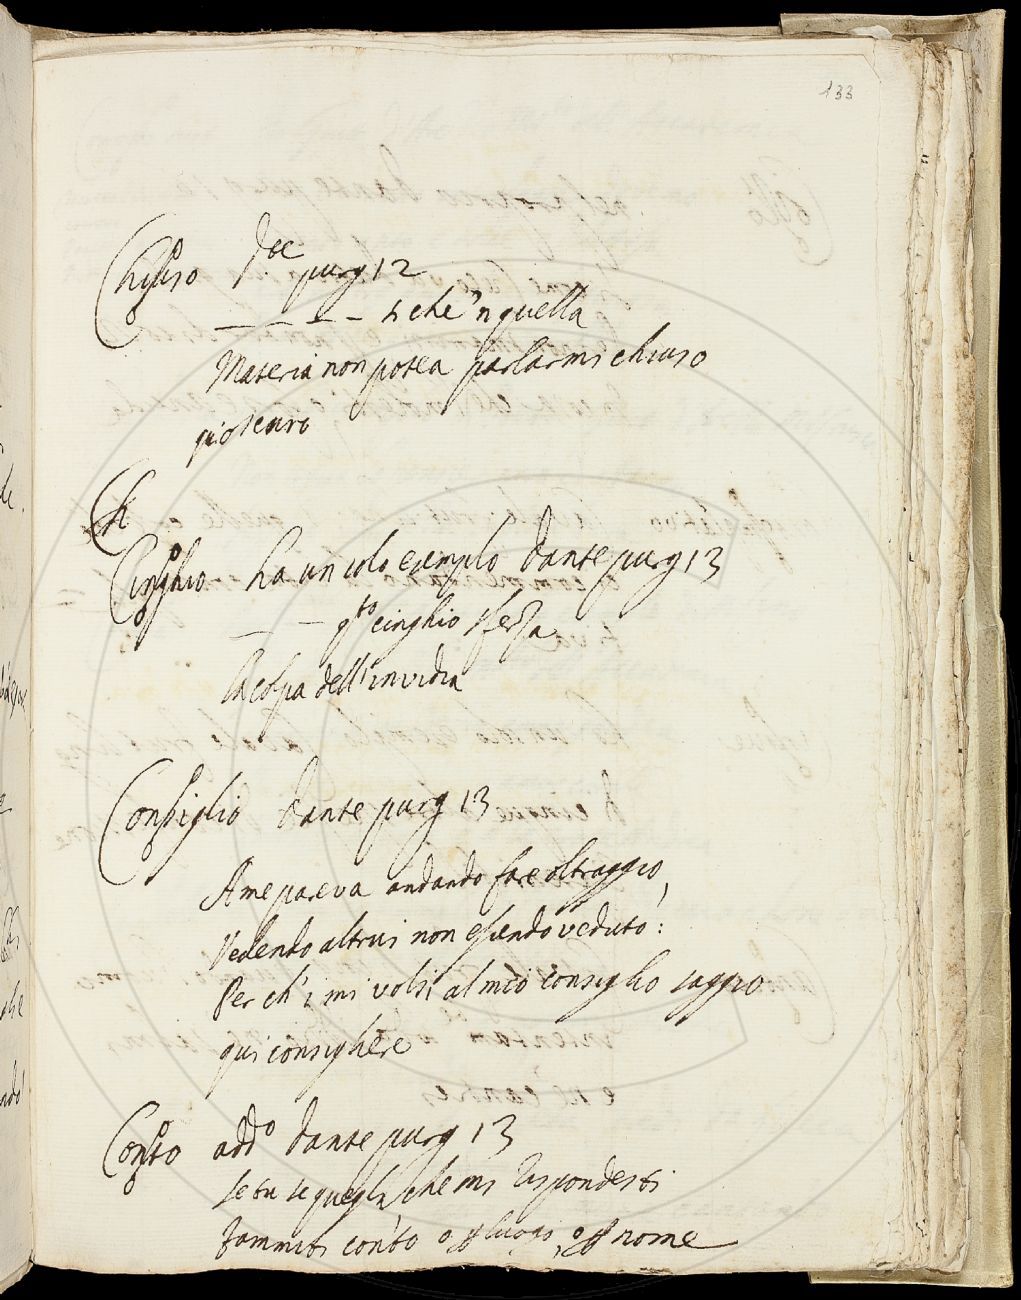 133
Chiuso
purg 12
che 'n quella
Materia non potea parlarmi chiuso
qui oscuro
Ch
Cinghio ha un solo esemplo dante purg 13
q.to cinghio sferza
la colpa dell'invidia
Consiglio dante purg 13
A me pareva andando fare oltraggio,
Vedendo altrui non essendo veduto:
Per ch'i mi volsi al mio consiglio saggio
qui consigliere
Conto add.o dante purg 13
se tu se quegli che mi rispondesti
fammiti conto o p luogo, o p nome